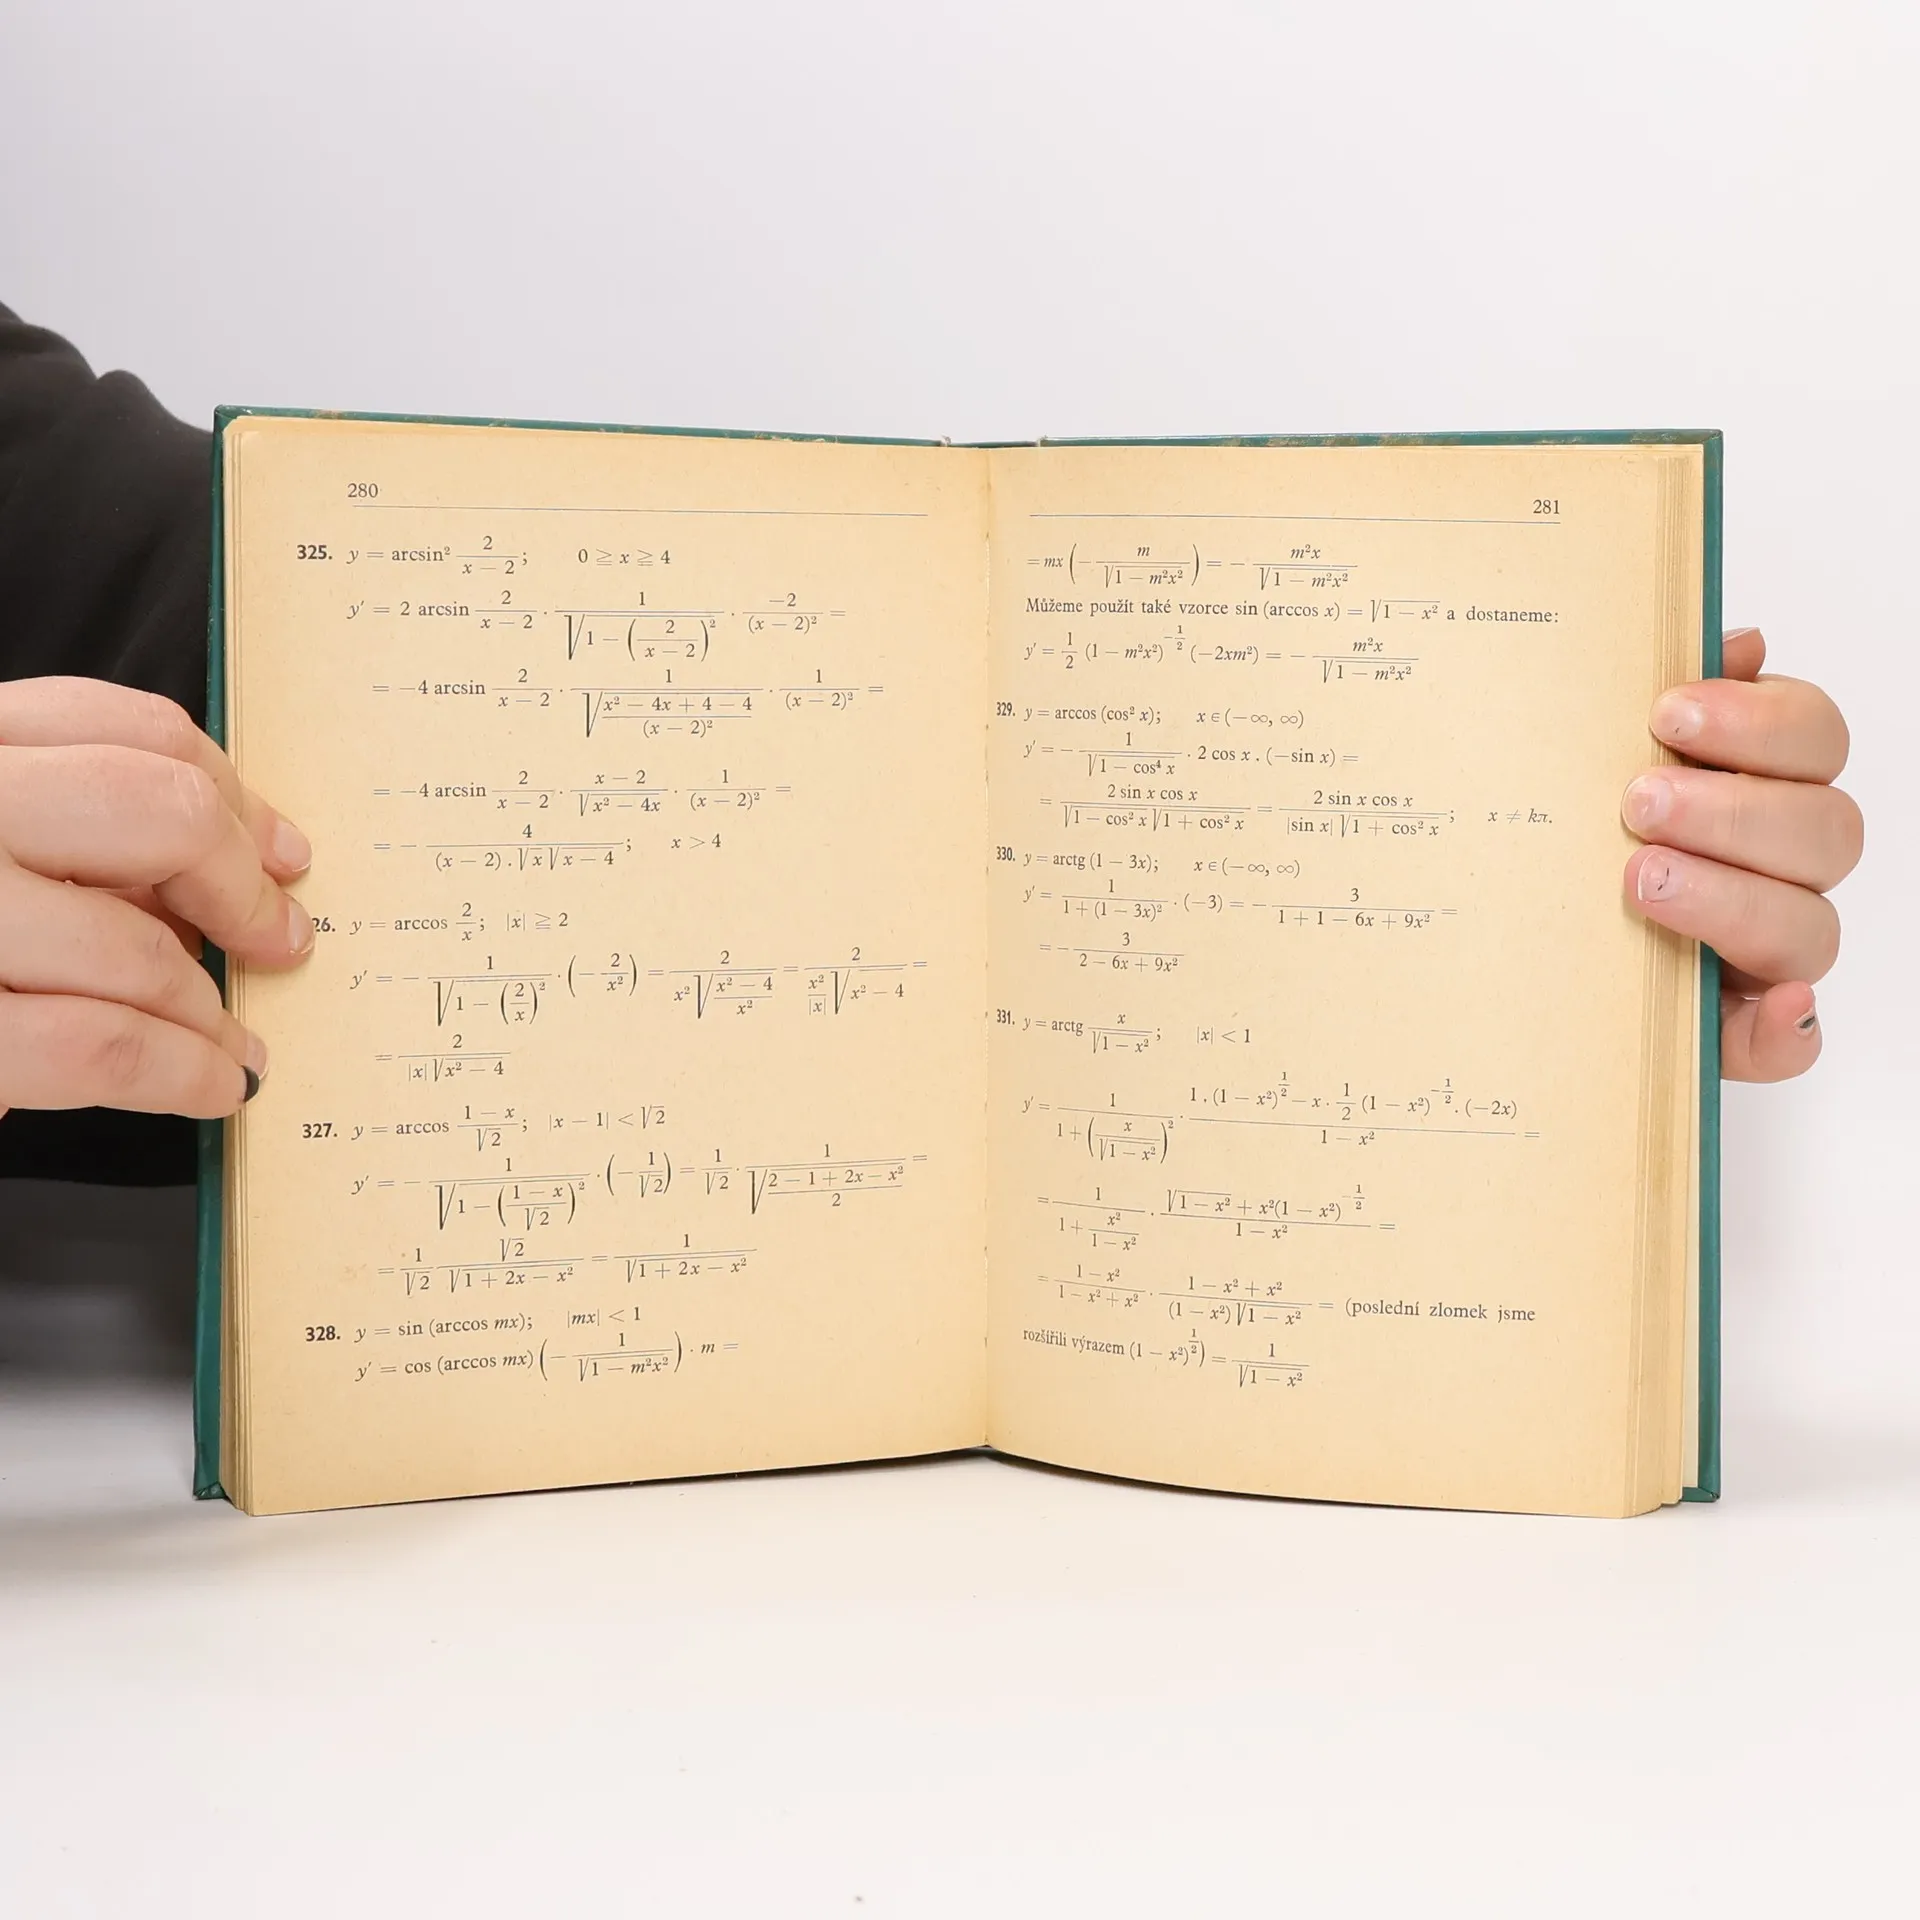 280
325. y = arcsin² 2/(x − 2); 0 ≧ x ≧ 4
y′ = 2 arcsin 2/(x − 2) · 1/√(1 − (2/(x − 2))²) · −2/(x − 2)² =
= −4 arcsin 2/(x − 2) · 1/√((x² − 4x + 4 − 4)/(x − 2)²) · 1/(x − 2)² =
= −4 arcsin 2/(x − 2) · (x − 2)/√(x² − 4x) · 1/(x − 2)² =
= − 4/((x − 2) . √x √(x − 4)); x > 4
26. y = arccos 2/x; |x| ≧ 2
y′ = − 1/√(1 − (2/x)²) · (− 2/x²) = 2/(x² √((x² − 4)/x²)) = 2/((x²/|x|) √(x² − 4)) =
= 2/(|x| √(x² − 4))
327. y = arccos (1 − x)/√2; |x − 1| < √2
y′ = − 1/√(1 − ((1 − x)/√2)²) · (− 1/√2) = 1/√2 · 1/√((2 − 1 + 2x − x²)/2) =
= 1/√2 · √2/√(1 + 2x − x²) = 1/√(1 + 2x − x²)
328. y = sin (arccos mx); |mx| < 1
y′ = cos (arccos mx) (− 1/√(1 − m²x²)) · m =
281
= mx (− m/√(1 − m²x²)) = − m²x/√(1 − m²x²)
Můžeme použít také vzorce sin (arccos x) = √(1 − x²) a dostaneme:
y′ = 1/2 (1 − m²x²)^(−1/2) (−2xm²) = − m²x/√(1 − m²x²)
329. y = arccos (cos² x); x ∈ (−∞, ∞)
y′ = − 1/√(1 − cos⁴ x) · 2 cos x . (−sin x) =
= 2 sin x cos x/(√(1 − cos² x) √(1 + cos² x)) = 2 sin x cos x/(|sin x| √(1 + cos² x)); x ≠ kπ.
330. y = arctg (1 − 3x); x ∈ (−∞, ∞)
y′ = 1/(1 + (1 − 3x)²) · (−3) = − 3/(1 + 1 − 6x + 9x²) =
= − 3/(2 − 6x + 9x²)
331. y = arctg x/√(1 − x²); |x| < 1
y′ = 1/(1 + (x/√(1 − x²))²) · (1 . (1 − x²)^(1/2) − x · 1/2 (1 − x²)^(−1/2) . (−2x))/(1 − x²) =
= 1/(1 + x²/(1 − x²)) · (√(1 − x²) + x²(1 − x²)^(−1/2))/(1 − x²) =
= (1 − x²)/(1 − x² + x²) · (1 − x² + x²)/((1 − x²) √(1 − x²)) = (poslední zlomek jsme
rozšířili výrazem (1 − x²)^(1/2)) = 1/√(1 − x²)